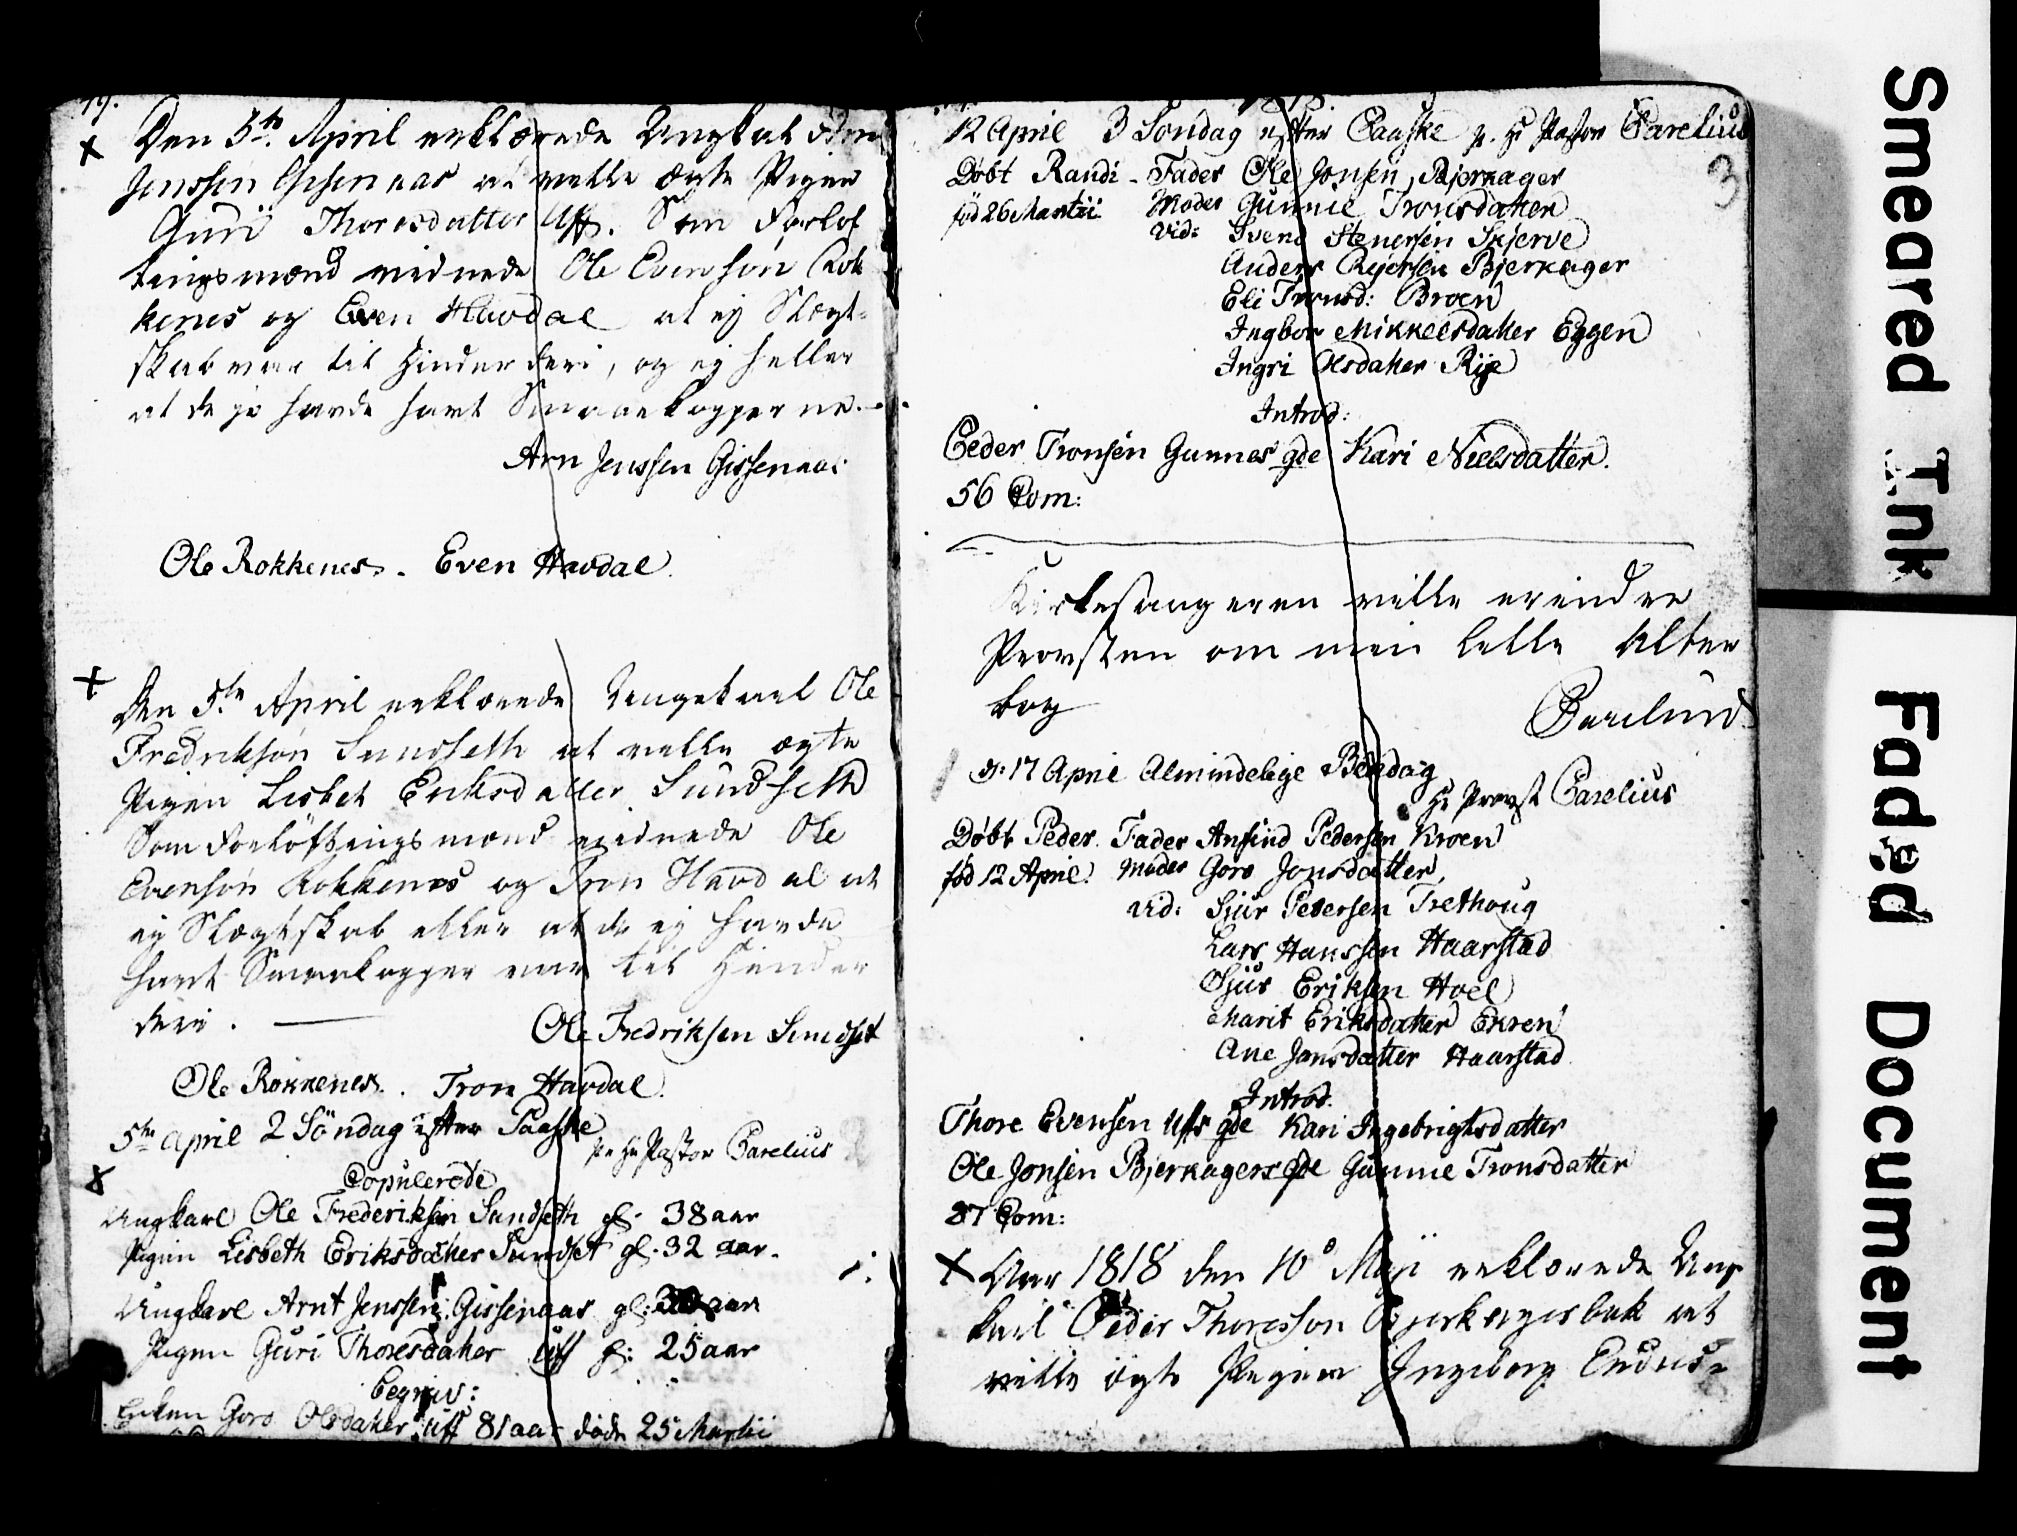 Den 5te April erklærede Ungkal
Jenssen Gisenaas at ville ægte Pigen
Guri Thoresdatter Uff. Som Forlof
tingsmænd meenede Ole Evensøn Rok
kenes og Even Havdal at ej Slægt-
skab var til Hinder deri, og ej heller
at de jo havde havt Smaaekopperne.
Arn Jenssen Gissenaas
Ole Rokkenes. Even Havdal.
Den 5te April erklærede Ungekarl Ole
Fredriksøn Sundseth at ville ægte
Pigen Lisbet Eriksdatter Sundseth
Som Forløftningsmænd meenede Ole
Evensøn Rokkenes og Tron Havdal at
ej Slægtskab eller at de ej havde
havt Smaaekopper var til Hinder
deri.
Ole Fredriksen Sundset
Ole Rokkenes. Tron Havdal.
5te April 2 Söndag efter Paaske
Hr Pastor Parelius
Copulerede
Ungkarl Ole Frederiksen Sundseth gl. 38 aar
Pigen Lisbeth Eriksdatter Sundset gl. 32 aar.
Ungkarl Arnt Jenssen Gissenaas gl: aar
Pigen Guri Thoresdatter Uff gl: 25 aar
begrav:
Enken Goro Olsdatter Uff 81 aar døde 25 Martii
1818.
12 April 3 Söndag efter Paaske p. Hr Pastor Parelius
3
Døbt Randi - Fader Ole Jonsen Bjerkager
fød 26 Martii Moder Gunnie Tronsdatter
Vid: Svend Stenersen Skjerve
Anders Rejersen Bjerkager
Eli Tronsd: Broen
Ingbor Mikkelsdatter Eggen
Ingri Olsdatter Rije
Introd:
Peder Tronsen Gunnes gde Kari Nielsdatter.
56 Com:
Kirkesangeren ville erindre
Provsten om min lille Alter
bog
Parelius
d: 17 April Almindelige Bededag
Hr Provst Parelius
Døbt Peder. Fader Ansind Pedersen Kroen
fød 12 April. Moder Goro Jonsdatter,
Vid: Sjur Pedersen Trethoug
Lars Hanssen Haarstad
Sjur Eriksen Hoel
Marit Eriksdatter Ekren
Ane Jonsdatter Haarstad
Introd.
Thore Evensen Ufs gde Kari Ingebrigtsdatter
Ole Jonsen Bjerkagers gde Gunnie Tronsdatter
87 Com:
Aar 1818 den 10de Maji erklærede Ung
karl Peder Thoresson Bjerkagerbak at
ville ægte Pigen Ingeborg
Smeared Ink
Faded Document